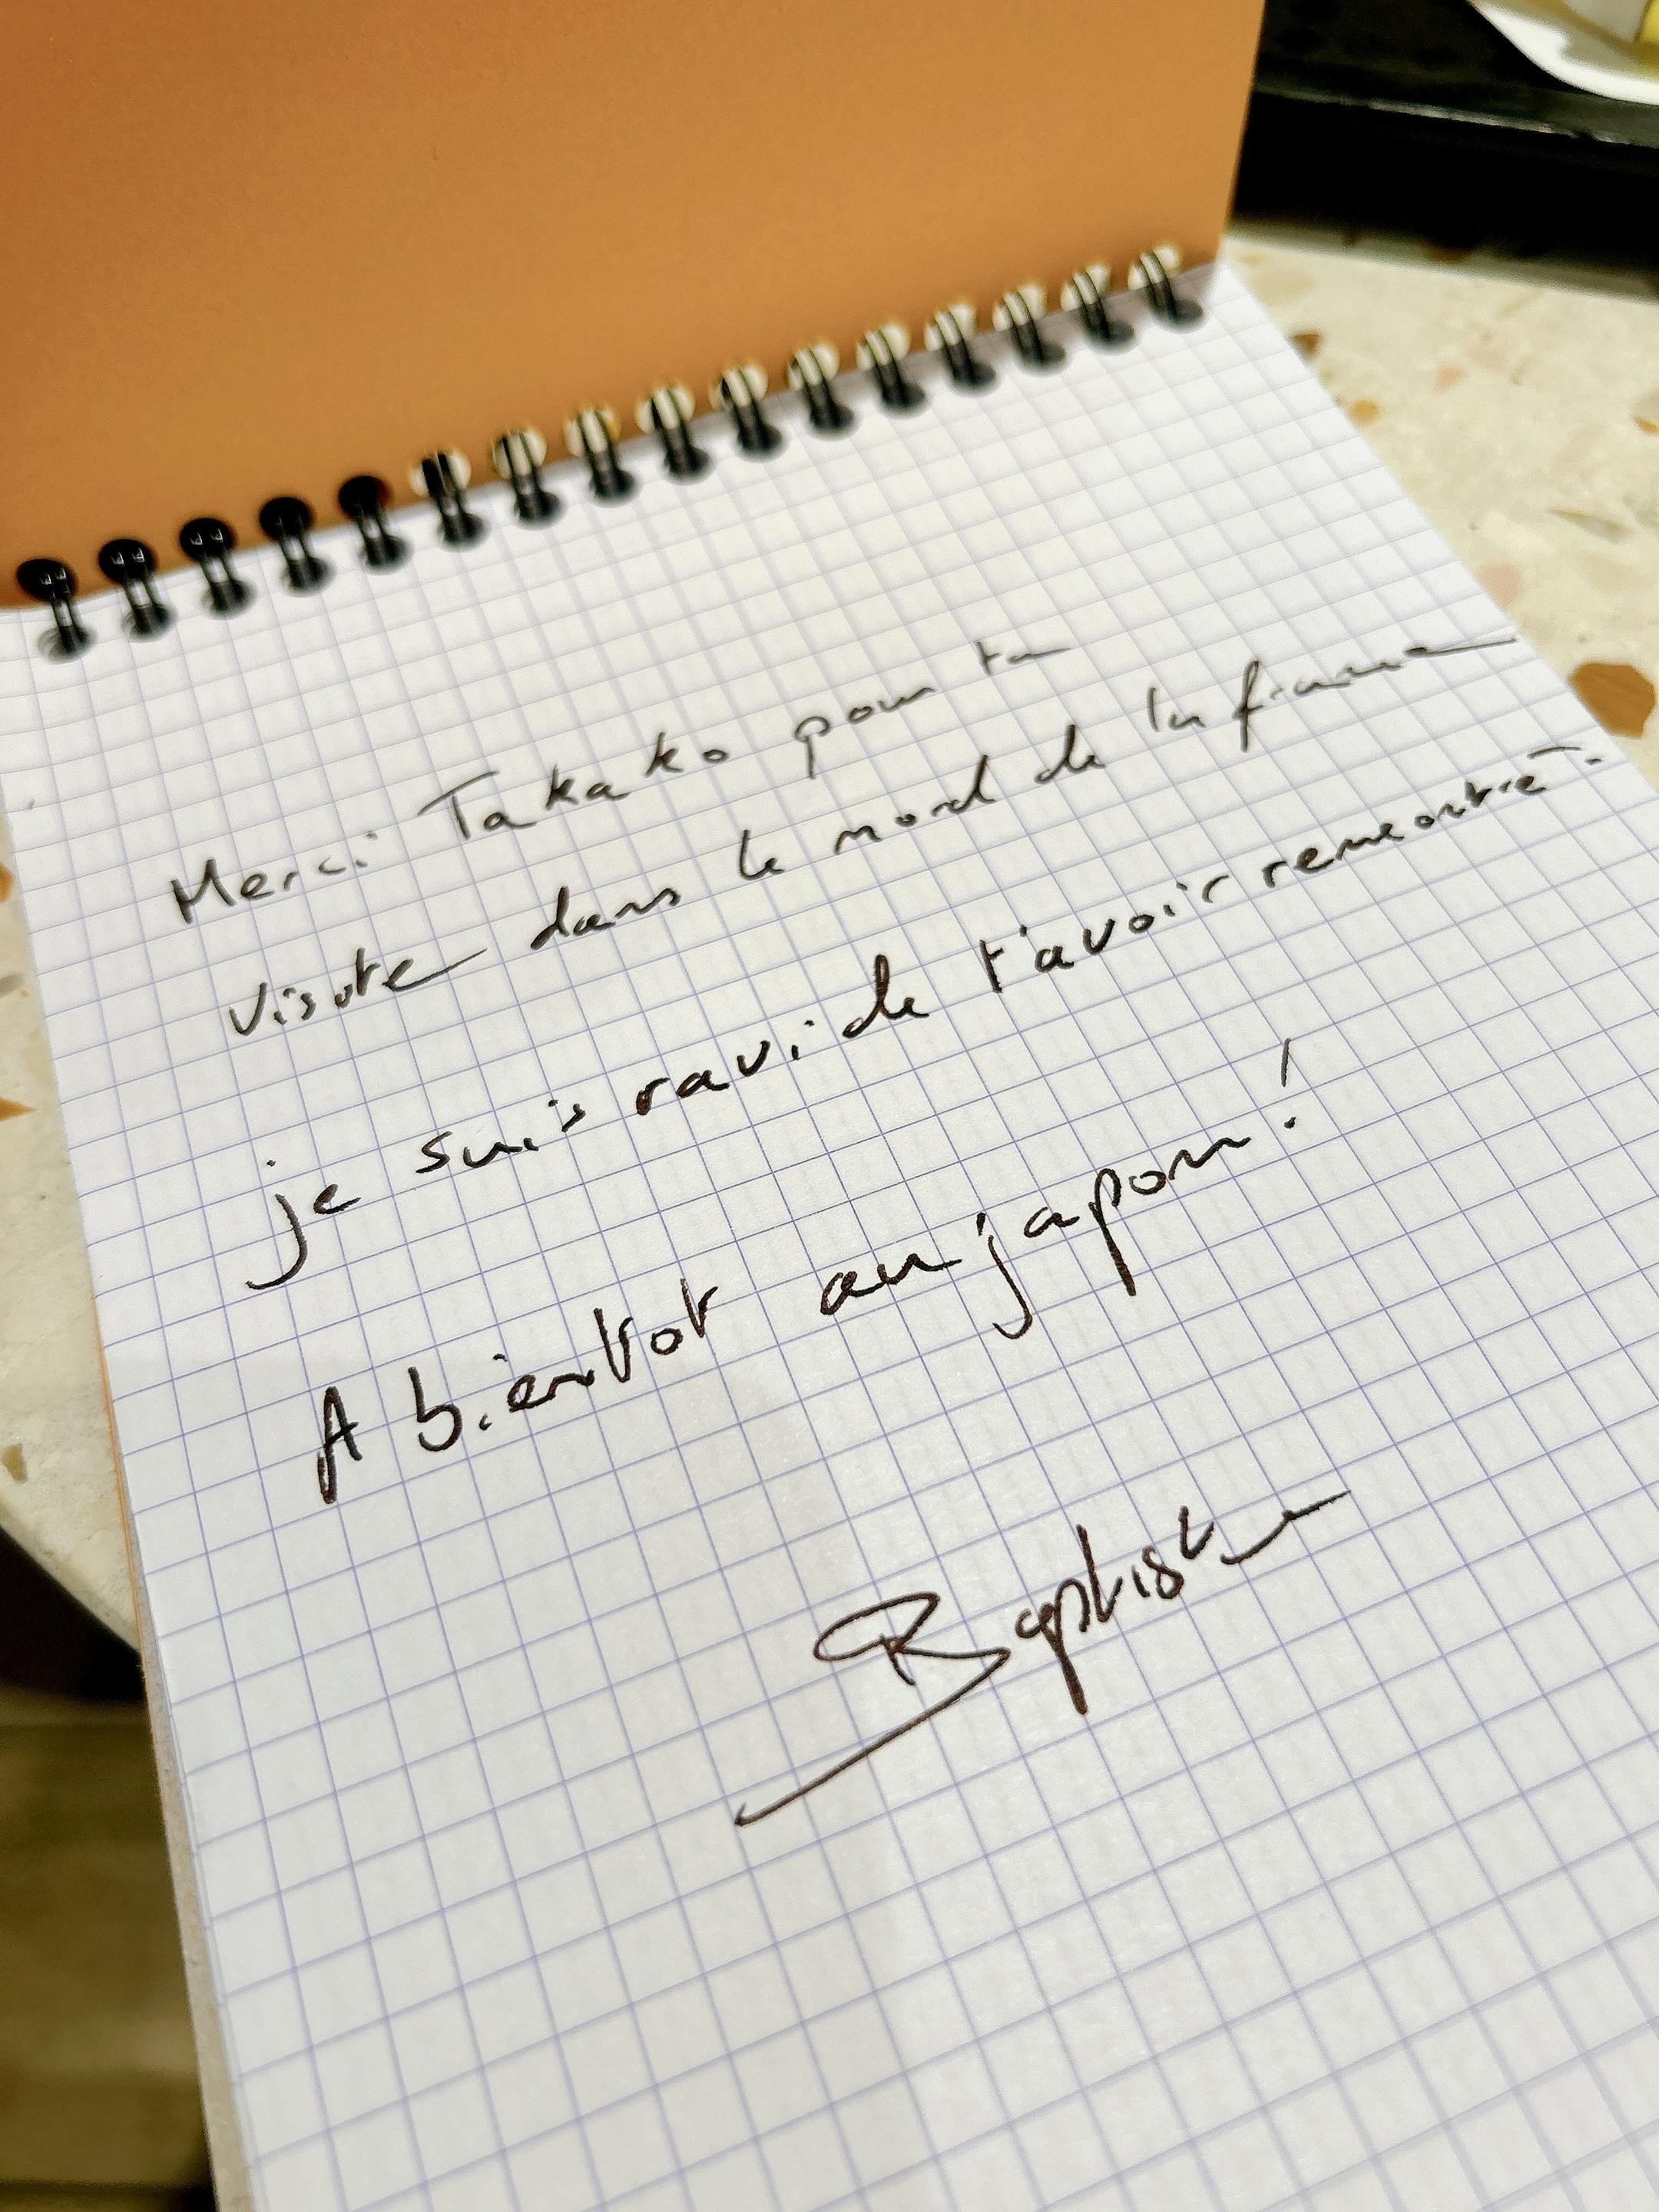 Merci Takako pour ta
visite dans le nord de la france
je suis ravi de t'avoir rencontré.
A bientot au japon!
Baptiste